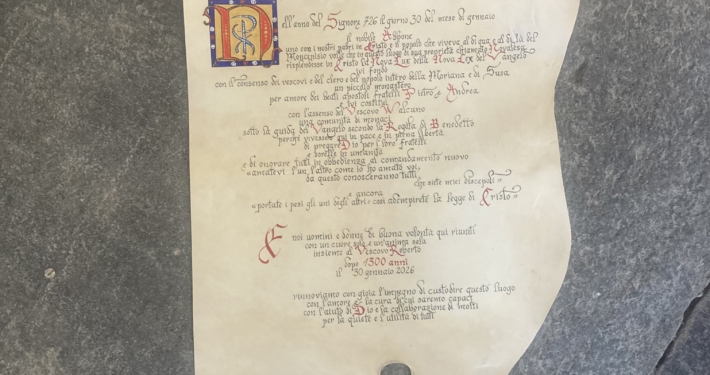 Nell'anno del Signore 726 il giorno 30 del mese di gennaio
il nobile Abbone
uno con i nostri padri in Cristo e il popolo che viveva al di qua e al di là del
Moncenisio volle in questo luogo di sua proprietà chiamato Novalesa
risplendesse in Cristo la Nova Lux della Nova Lex del Vangelo
ivi fondò
con il consenso dei vescovi e del clero e del popolo intero della Moriana e di Susa
un piccolo monastero
per amore dei beati apostoli fratelli Pietro e Andrea
e ivi costituì
con l'assenso del Vescovo Walcuno
una comunità di monaci
sotto la guida del Vangelo secondo la Regola di Benedetto
perché vivesse qui in pace e in piena libertà
di pregare Dio per i loro fratelli
e sorelle in umanità
e di onorare tutti in obbedienza al comandamento nuovo
«amatevi l'un l'altro come io ho amato voi,
da questo conosceranno tutti
che siete miei discepoli»
e ancora
«portate i pesi gli uni degli altri: così adempirete la legge di Cristo»
E noi uomini e donne di buona volontà qui riuniti
con un cuore solo e un'anima sola
insieme al Vescovo Roberto
dopo 1300 anni
il 30 gennaio 2026
rinnoviamo con gioia l'impegno di custodire questo luogo
con l'amore e la cura di cui saremo capaci
con l'aiuto di Dio e la collaborazione di molti
per la quiete e l'utilità di tutti